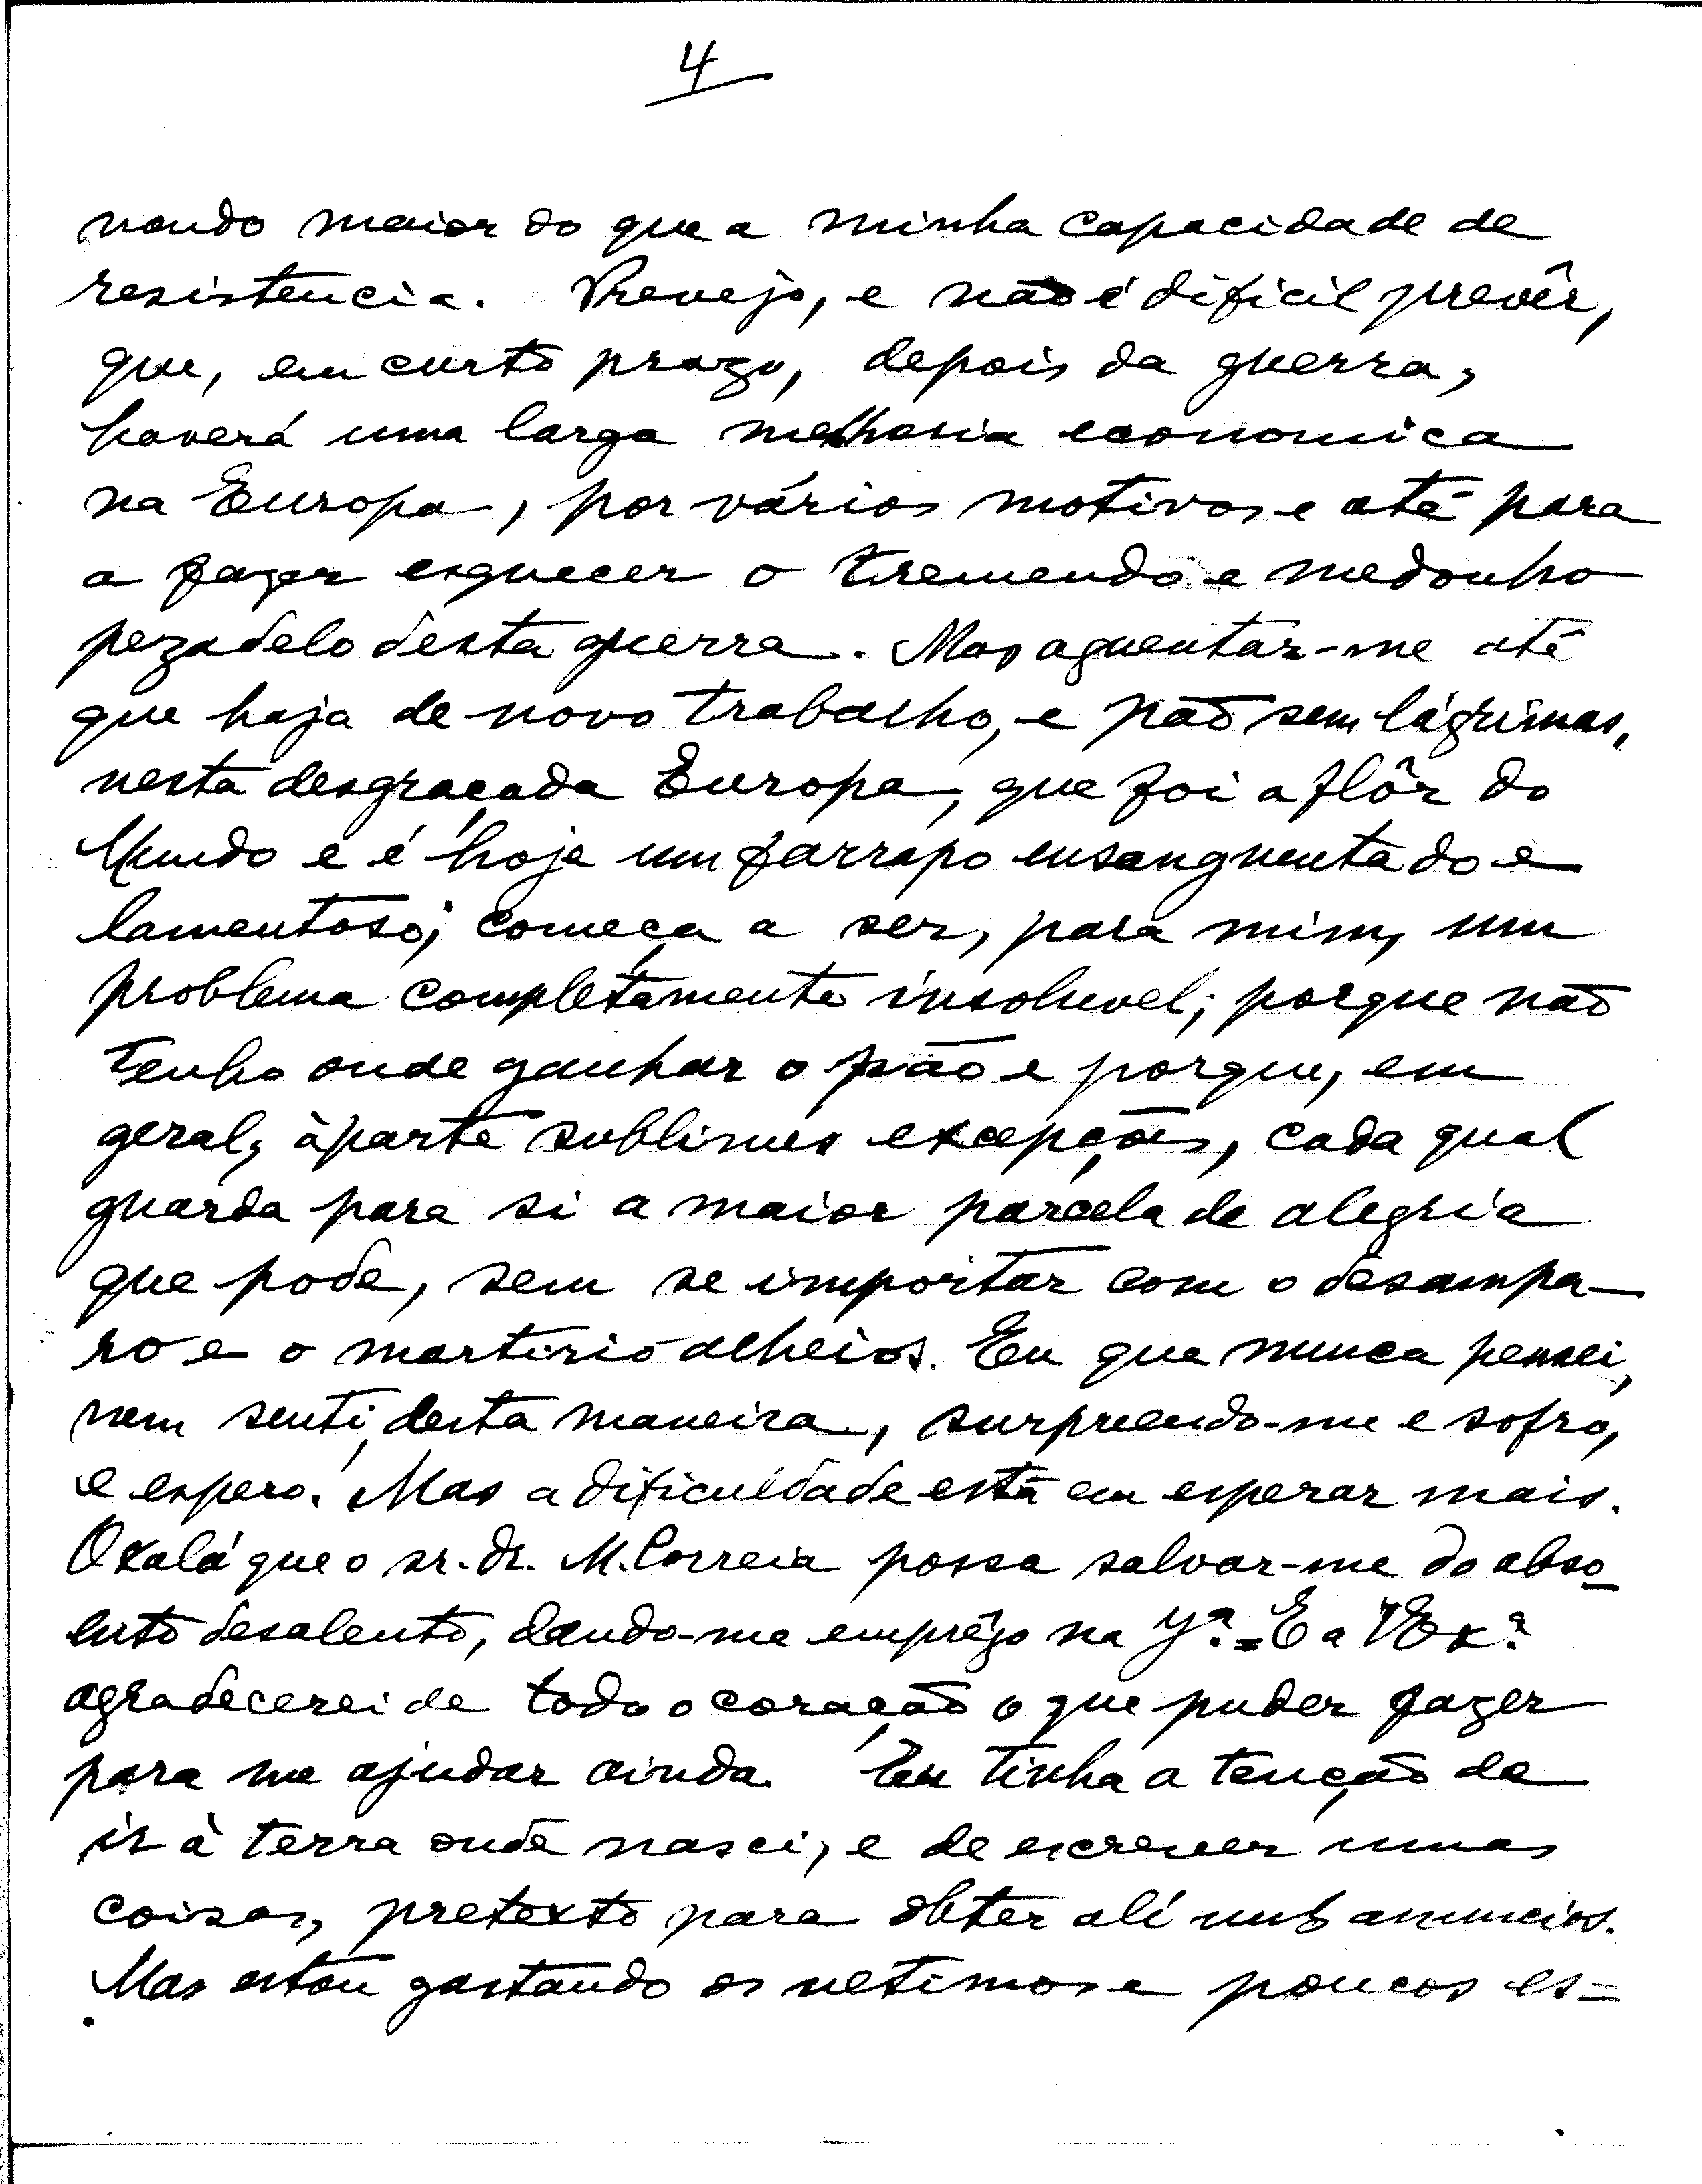 4
nando maior do que a minha capacidade de
resistencia. Prevejo, e não é dificil prevêr,
que, em curto prazo, depois da guerra,
haverá uma larga melhoria economica
na Europa, por vários motivos e até para
a fazer esquecer o tremendo e medonho
pezadelo desta guerra. Mas aguentar-me até
que haja de novo trabalho, e pão sem lágrimas,
nesta desgraçada Europa, que foi a flôr do
Mundo e é hoje um farrapo ensanguentado e
lamentoso, começa a ser, para mim, um
problema completamente insoluvel; porque não
tenho onde ganhar o pão e porque, em
geral, àparte sublimes excepções, cada qual
guarda para si a maior parcela de alegria
que pode, sem se importar com o desampa-
ro e o martirio alheios. Eu que nunca pensei,
nem senti, desta maneira, surpreendo-me e sofro,
e espero. Mas a dificuldade está em esperar mais.
Oxalá que o sr. dr. M. Correia possa salvar-me do abso-
luto desalento, dando-me emprêgo na Yª. E a V Exª
agradecerei de todo o coração o que puder fazer
para me ajudar ainda. Eu tinha a tenção de
ir à terra onde nasci, e de escrever umas
coisas, pretexto para obter ali uns anuncios.
Mas estou gastando os ultimos e poucos es-